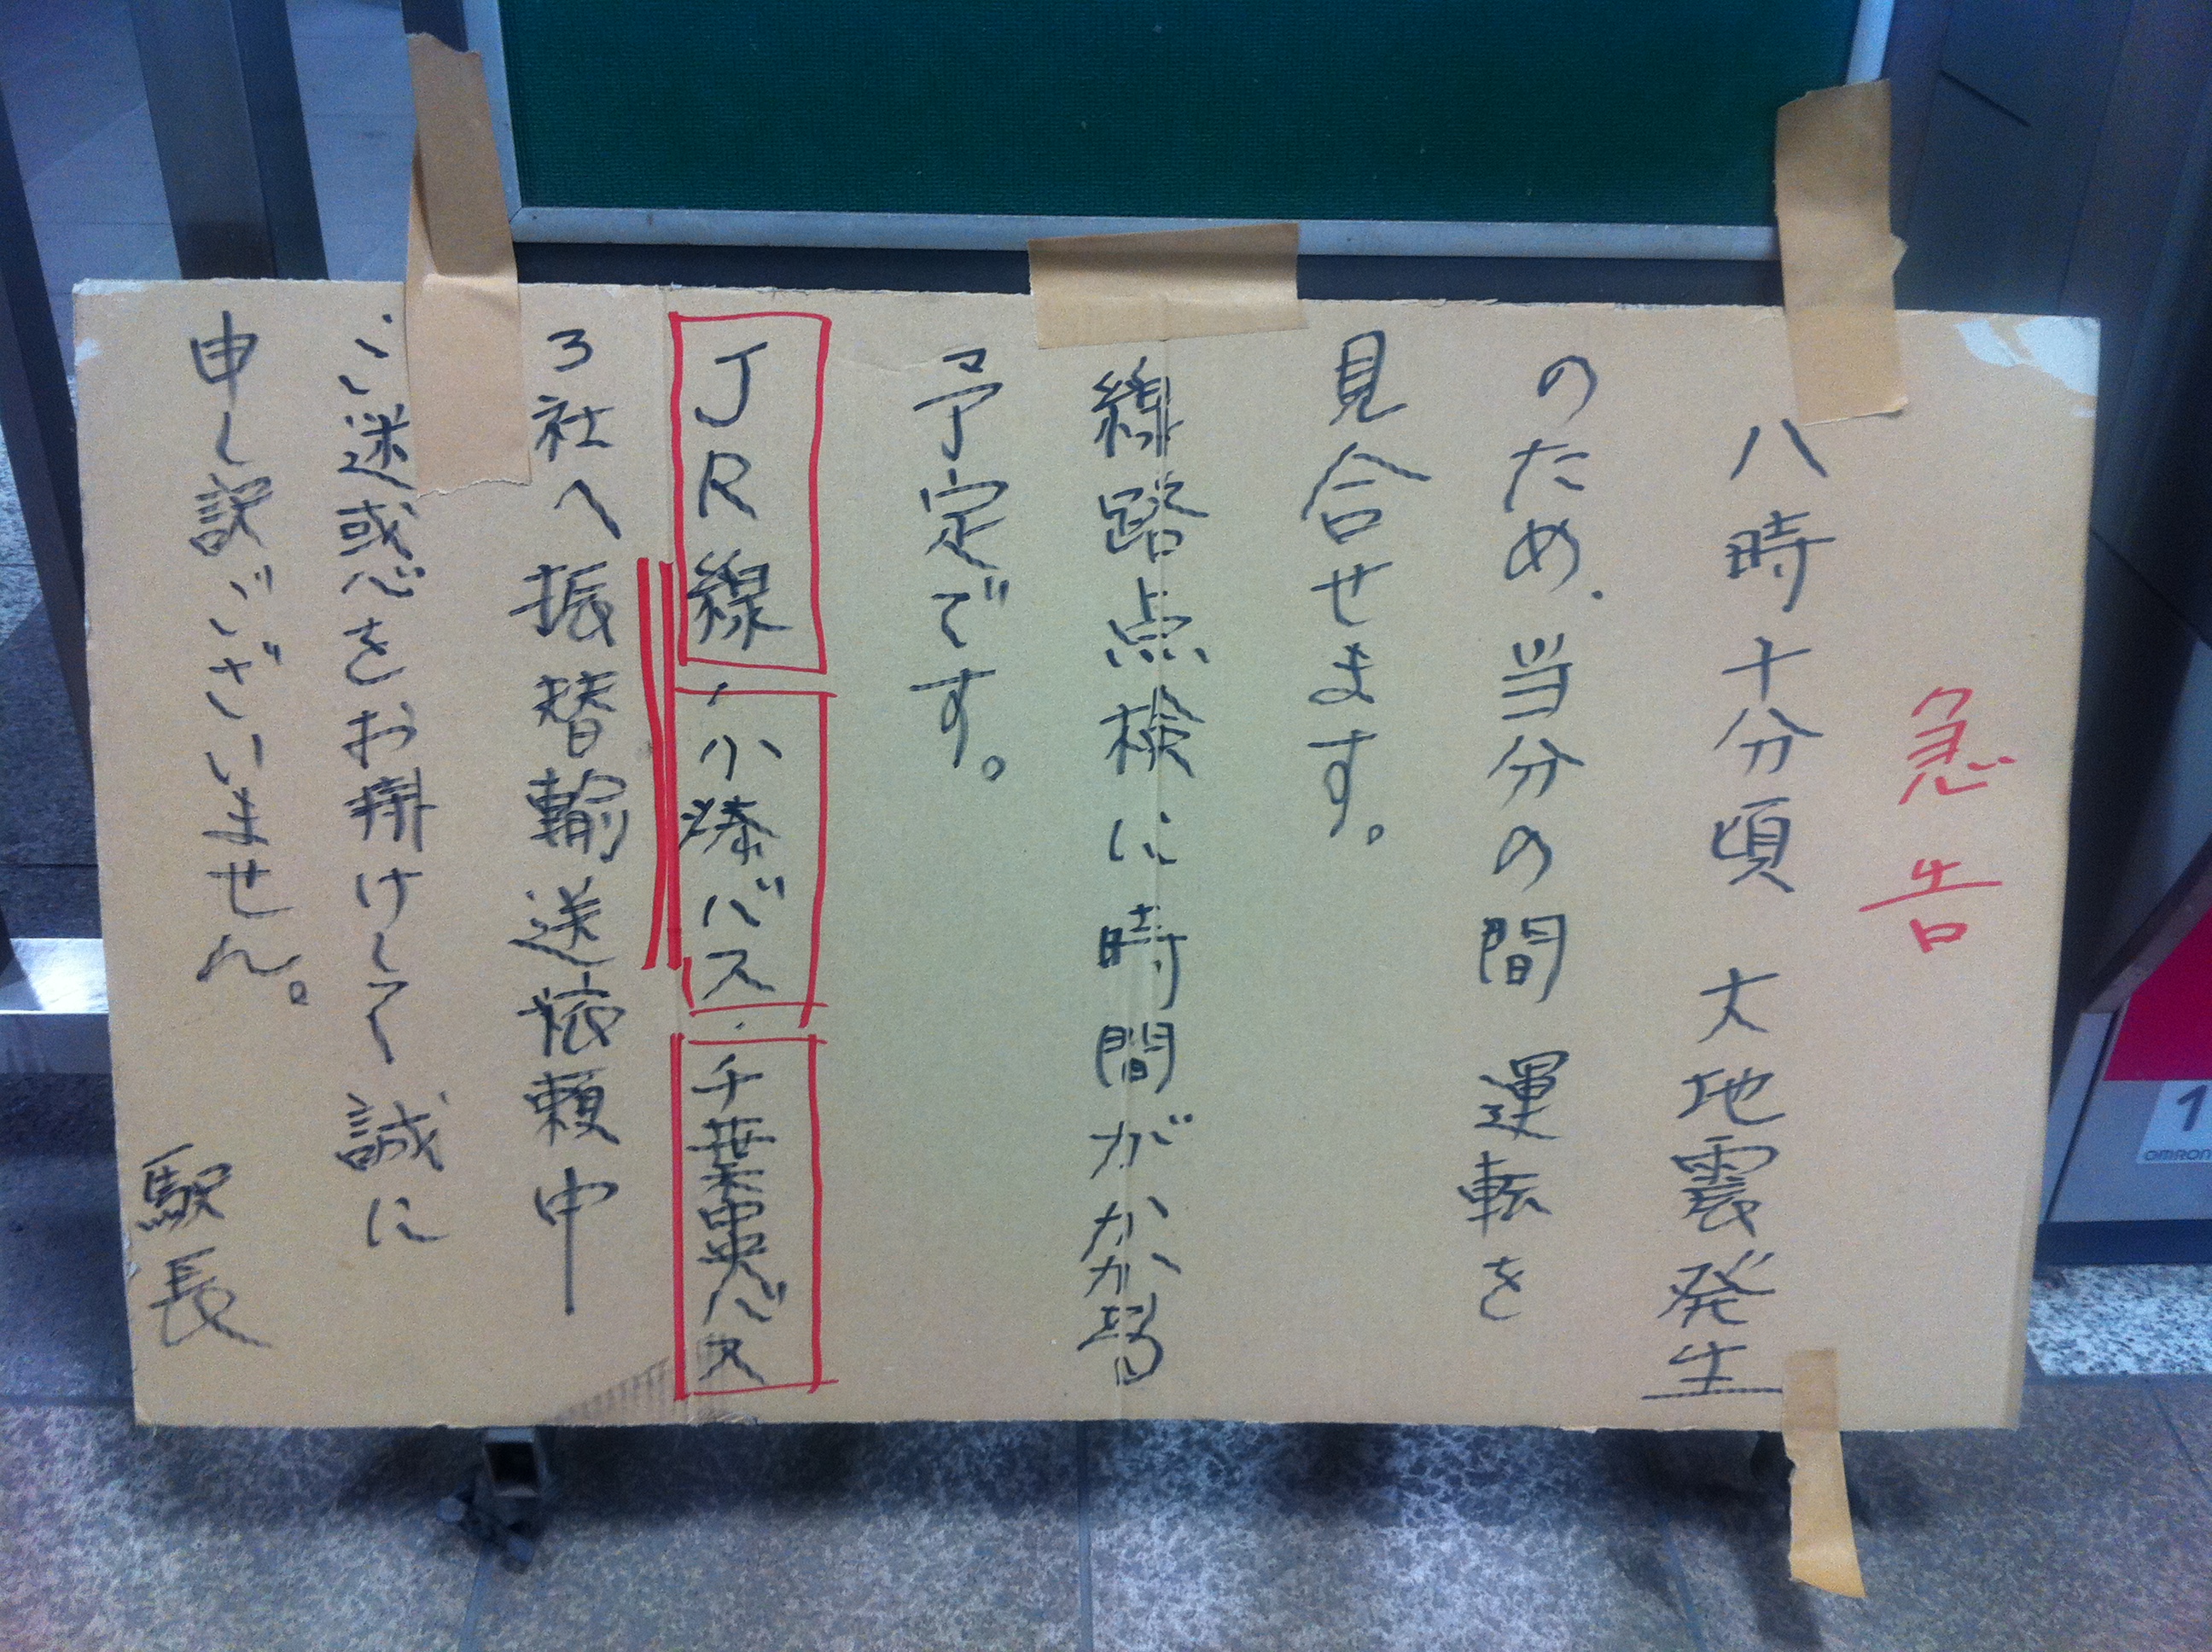 急告
八時十分頃 大地震発生
のため、当分の間 運転を
見合せます。
線路点検に時間がかかる
予定です。
JR線・小湊バス・千葉中央バス
3社へ振替輸送依頼中
ご迷惑をお掛けして誠に
申し訳ございません。
駅長
1
OMRON